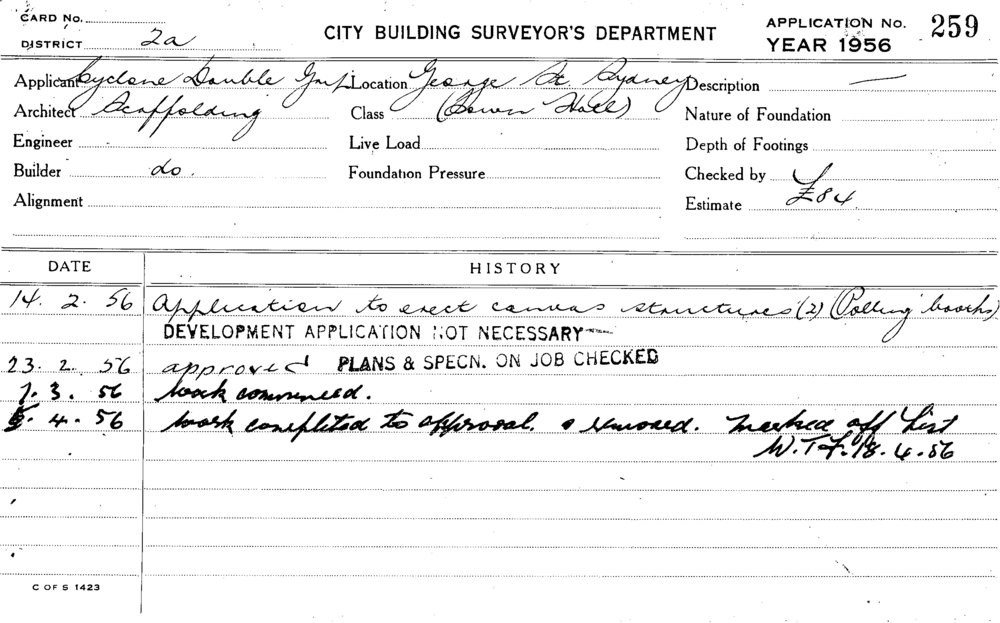 CARD No.
DISTRICT 2a
CITY BUILDING SURVEYOR'S DEPARTMENT
APPLICATION No. 259
YEAR 1956
Applicant Cyclone Double Grip Location George St Sydney Description —
Architect Scaffolding Class (Town Hall) Nature of Foundation
Engineer Live Load Depth of Footings
Builder do. Foundation Pressure Checked by
Alignment Estimate £84
DATE HISTORY
14. 2. 56 Application to erect canvas structures (2) (Polling booths)
DEVELOPMENT APPLICATION NOT NECESSARY
23. 2. 56 approved PLANS & SPECN. ON JOB CHECKED
7. 3. 56 work commenced.
4. 56 work completed to approval. & removed. Marked off List
W.T.F. 18. 4. 56
C OF S 1423